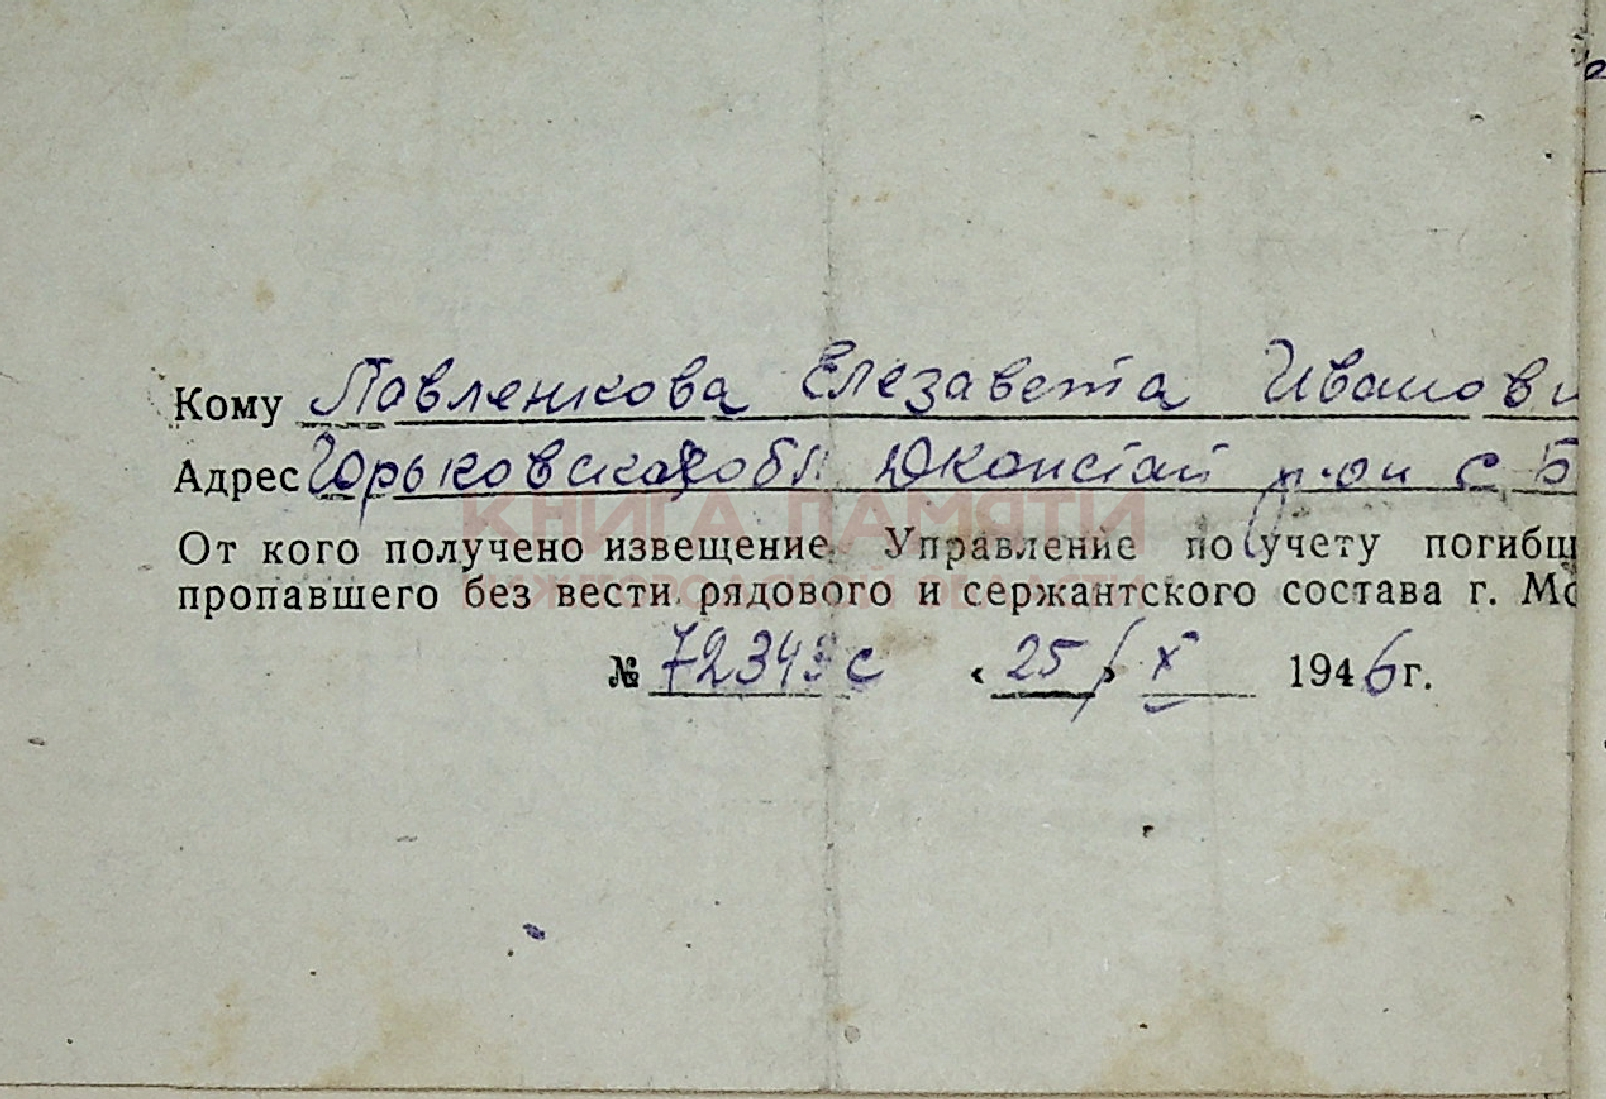 Кому Павленкова Елезавета Иванови
Адрес Горьковская обл Юконстай р-он с Б
КНИГА ПАМЯТИ
От кого получено извещение Управление по учету погибш
НИЖЕГОРОДСКОЙ ОБЛАСТИ
пропавшего без вести рядового и сержантского состава г. Мо
№ 72349с « 25 » X 1946 г.